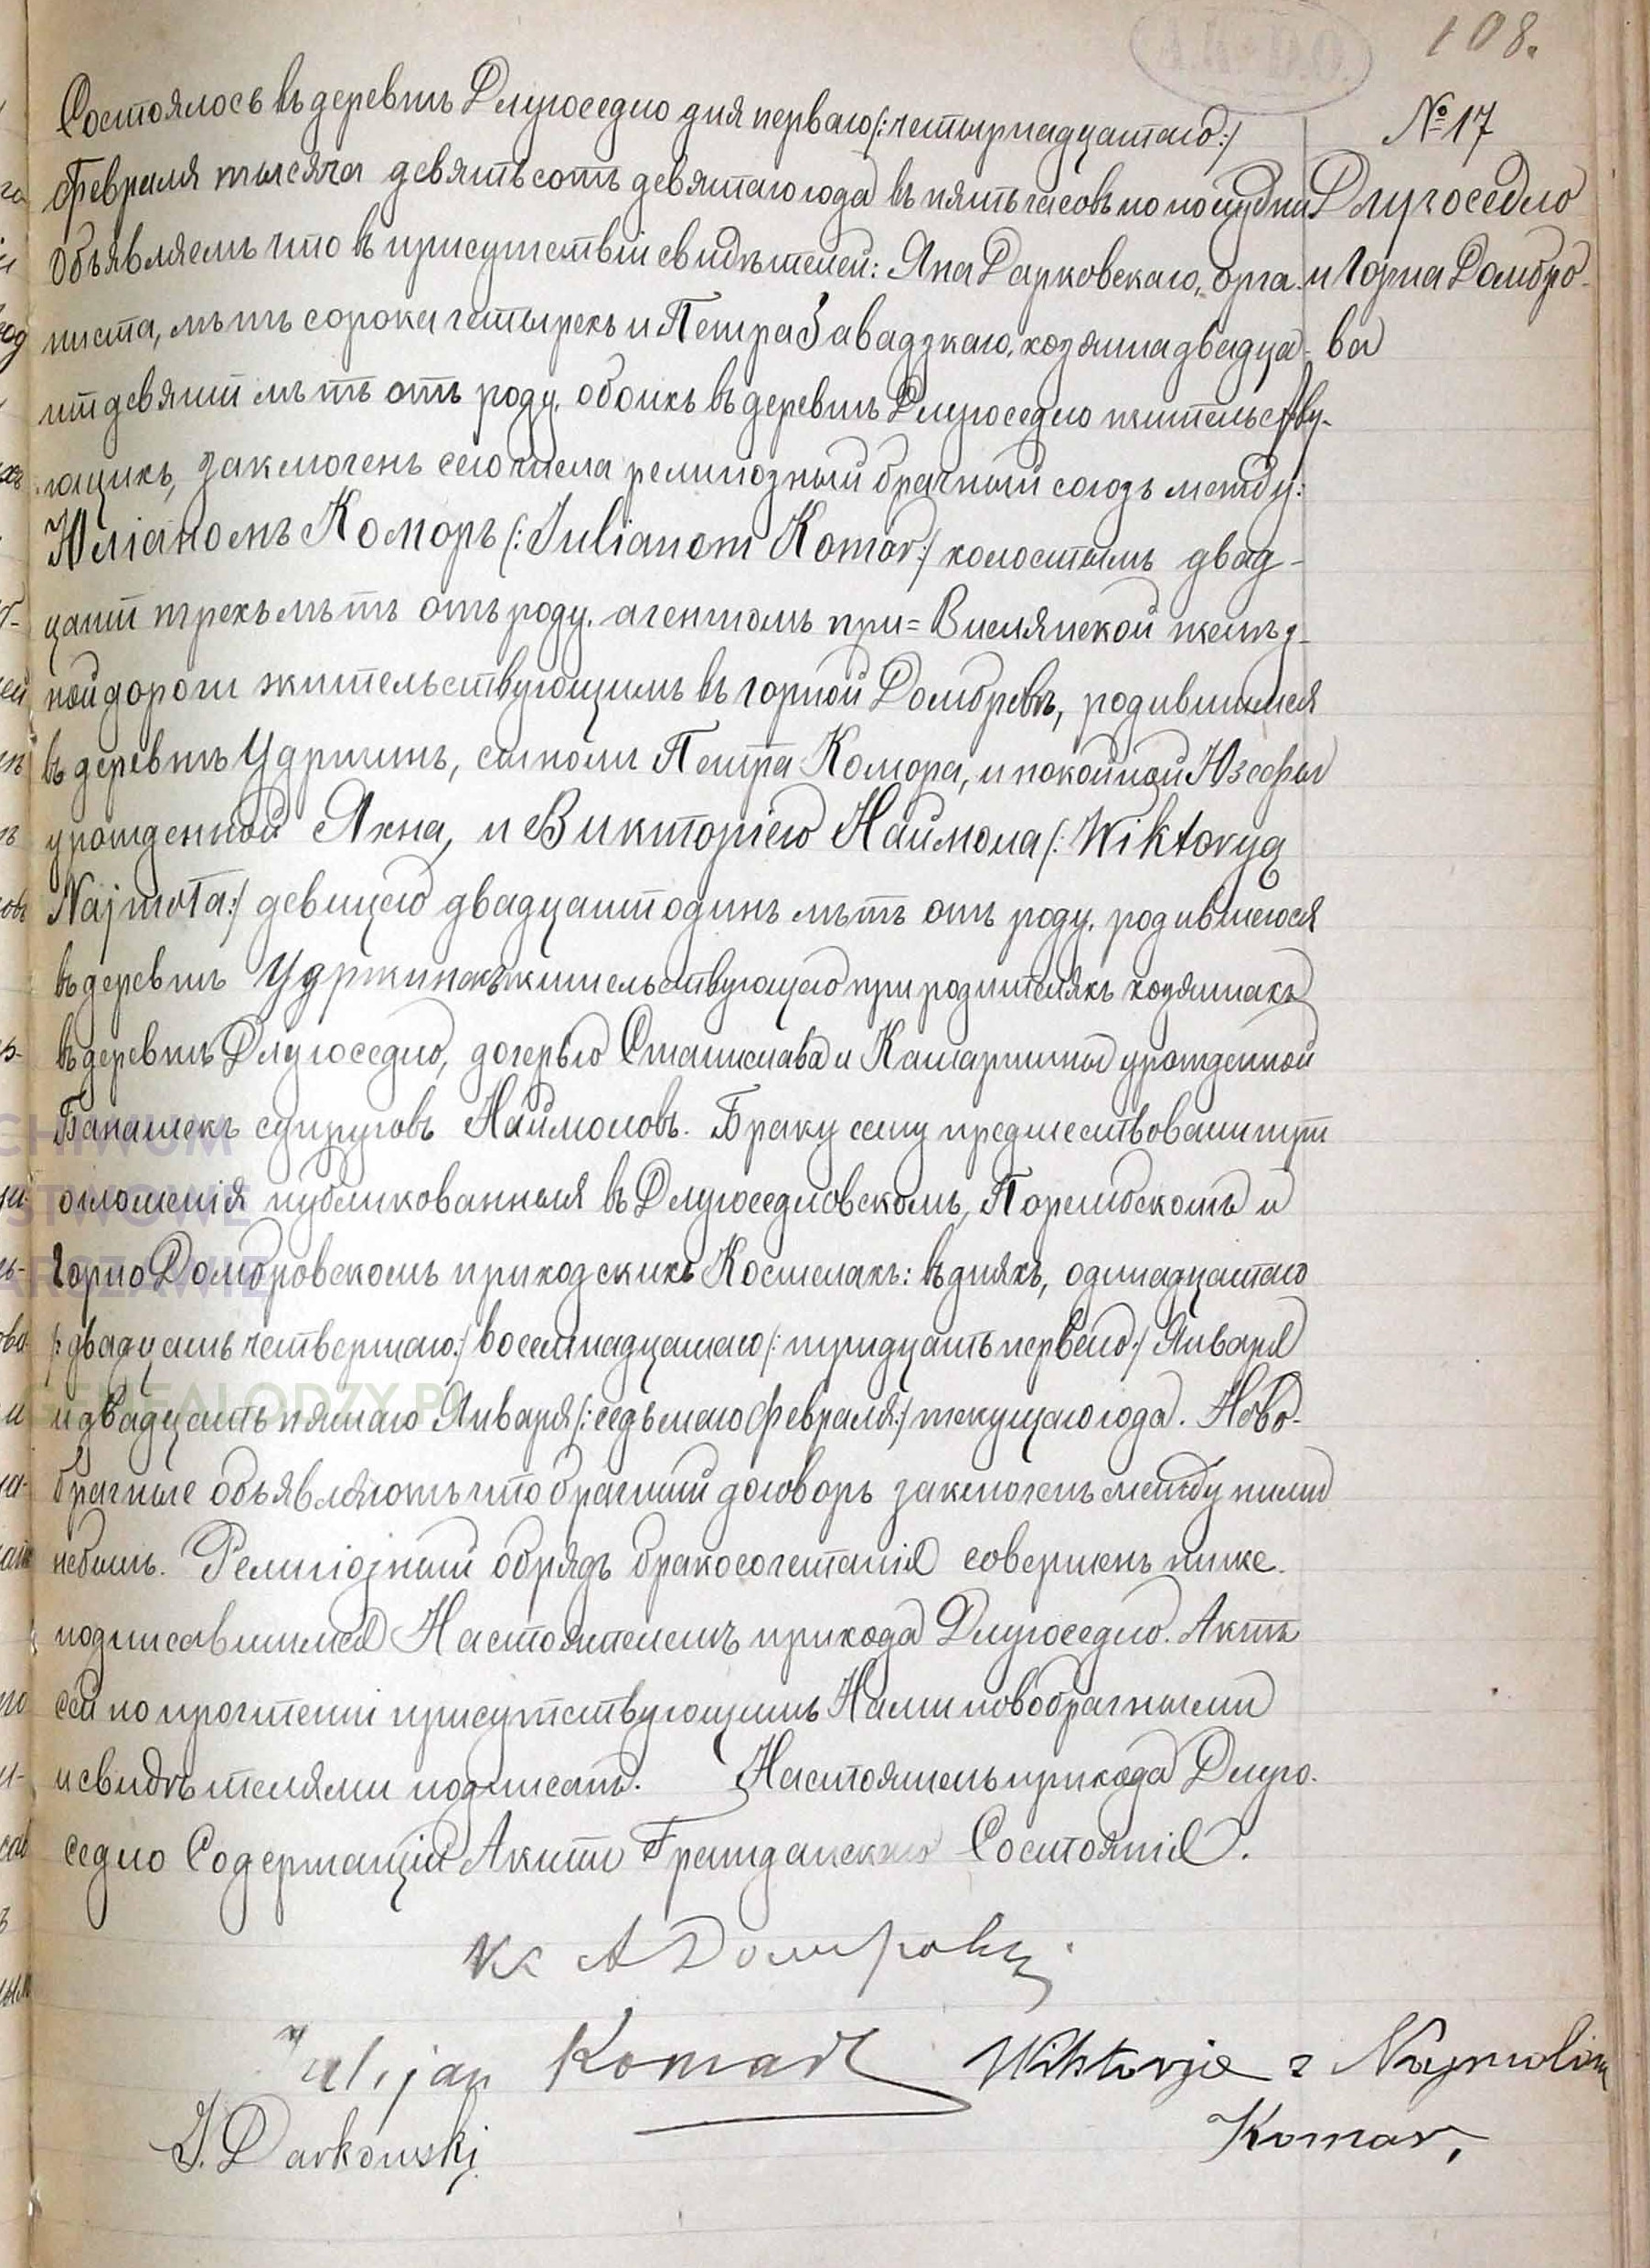 108.
№ 17
Длугоседло
и Горна Домбро-
ва
Состоялось въ деревнѣ Длугоседло дня перваго /:четырнадцатаго:/
Февраля тысяча девятьсотъ девятаго года въ пять часовъ по полудни
Объявляемъ что въ присутствіи свидѣтелей: Яна Дарковскаго, орга-
ниста, лѣтъ сорока четырехъ и Петра Завадзкаго, хозяина двадца-
ти девяти лѣтъ отъ роду, обоихъ въ деревнѣ Длугоседло жительству-
ющихъ, заключенъ сего числа религіозный брачный союзъ между:
Юліаномъ Коморъ /:Julianom Komór:/ холостымъ двад-
цати трехъ лѣтъ отъ роду, агентомъ при=Вислянской желѣз-
ной дороги жительствующимъ въ Горной Домбровѣ, родившимся
въ деревнѣ Удржинѣ, сыномъ Петра Комора, и покойной Юзефы
урожденной Яхна, и Викторіею Наймола /:Wiktoryą
Najmoła:/ девицею двадцати одинъ лѣтъ отъ роду, родившеюся
въ деревнѣ Удржинекъ жительствующею при родителяхъ хозяинахъ
въ деревнѣ Длугоседло, дочерью Станислава и Катаржины урожденной
Банашекъ супруговъ Наймоловъ. Браку сему предшествовали три
оглошенія публикованныя въ Длугоседловскомъ, Порембскомъ и
Горно Домбровскомъ приходскихъ Костелахъ: въ дняхъ, одинадцатаго
/:двадцать четвертаго:/ восемнадцатаго /:тридцать перваго:/ Января
и двадцать пятаго Января /:седьмаго Февраля:/ текущаго года. Ново-
брачные объявляютъ что брачный договоръ заключенъ между ними
небылъ. Религіозный обрядъ бракосочетанія совершенъ ниже-
подписавшимся Настоятелемъ прихода Длугоседло. Актъ
сей по прочтеніи присутствующимъ Нами новобрачными
и свидѣтелями подписанъ. Настоятель прихода Длуго-
седло Содержащій Акты Гражданскаго Состоянія.
Кс А Домбровскі
Julijan Komór Wiktorja z Najmołów
Komor,
J. Darkowski